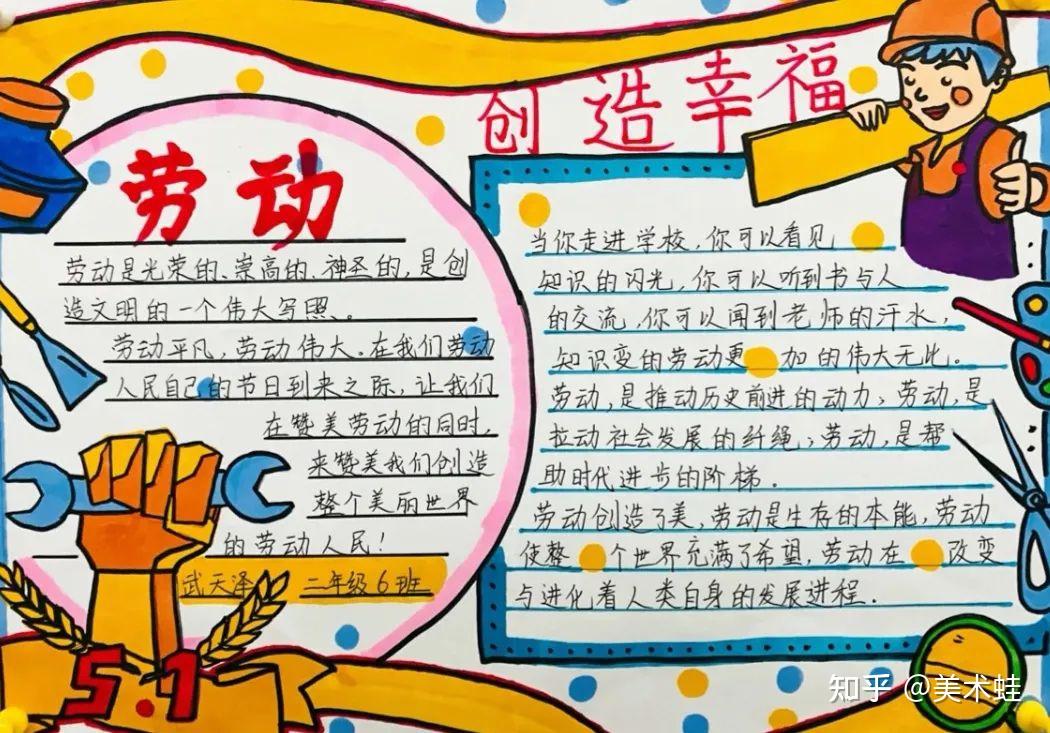 劳动创造幸福
劳动是光荣的、崇高的、神圣的,是创
造文明的一个伟大写照、。
劳动平凡,劳动伟大。在我们劳动
人民自己的节日到来之际,让我们
在赞美劳动的同时,
来赞美我们创造
整个美丽世界
的劳动人民!
武天泽 二年级6班
5.1
当你走进学校,你可以看见
知识的闪光,你可以听到书与人
的交流,你可以闻到老师的汗水,
知识变的劳动更加的伟大无比。
劳动,是推动历史前进的动力、劳动,是
拉动社会发展的纤绳、劳动,是帮
助时代进步的阶梯.
劳动创造了美,劳动是生存的本能,劳动
使整个世界充满了希望,劳动在改变
与进化着人类自身的发展进程.
知乎 @美术蛙